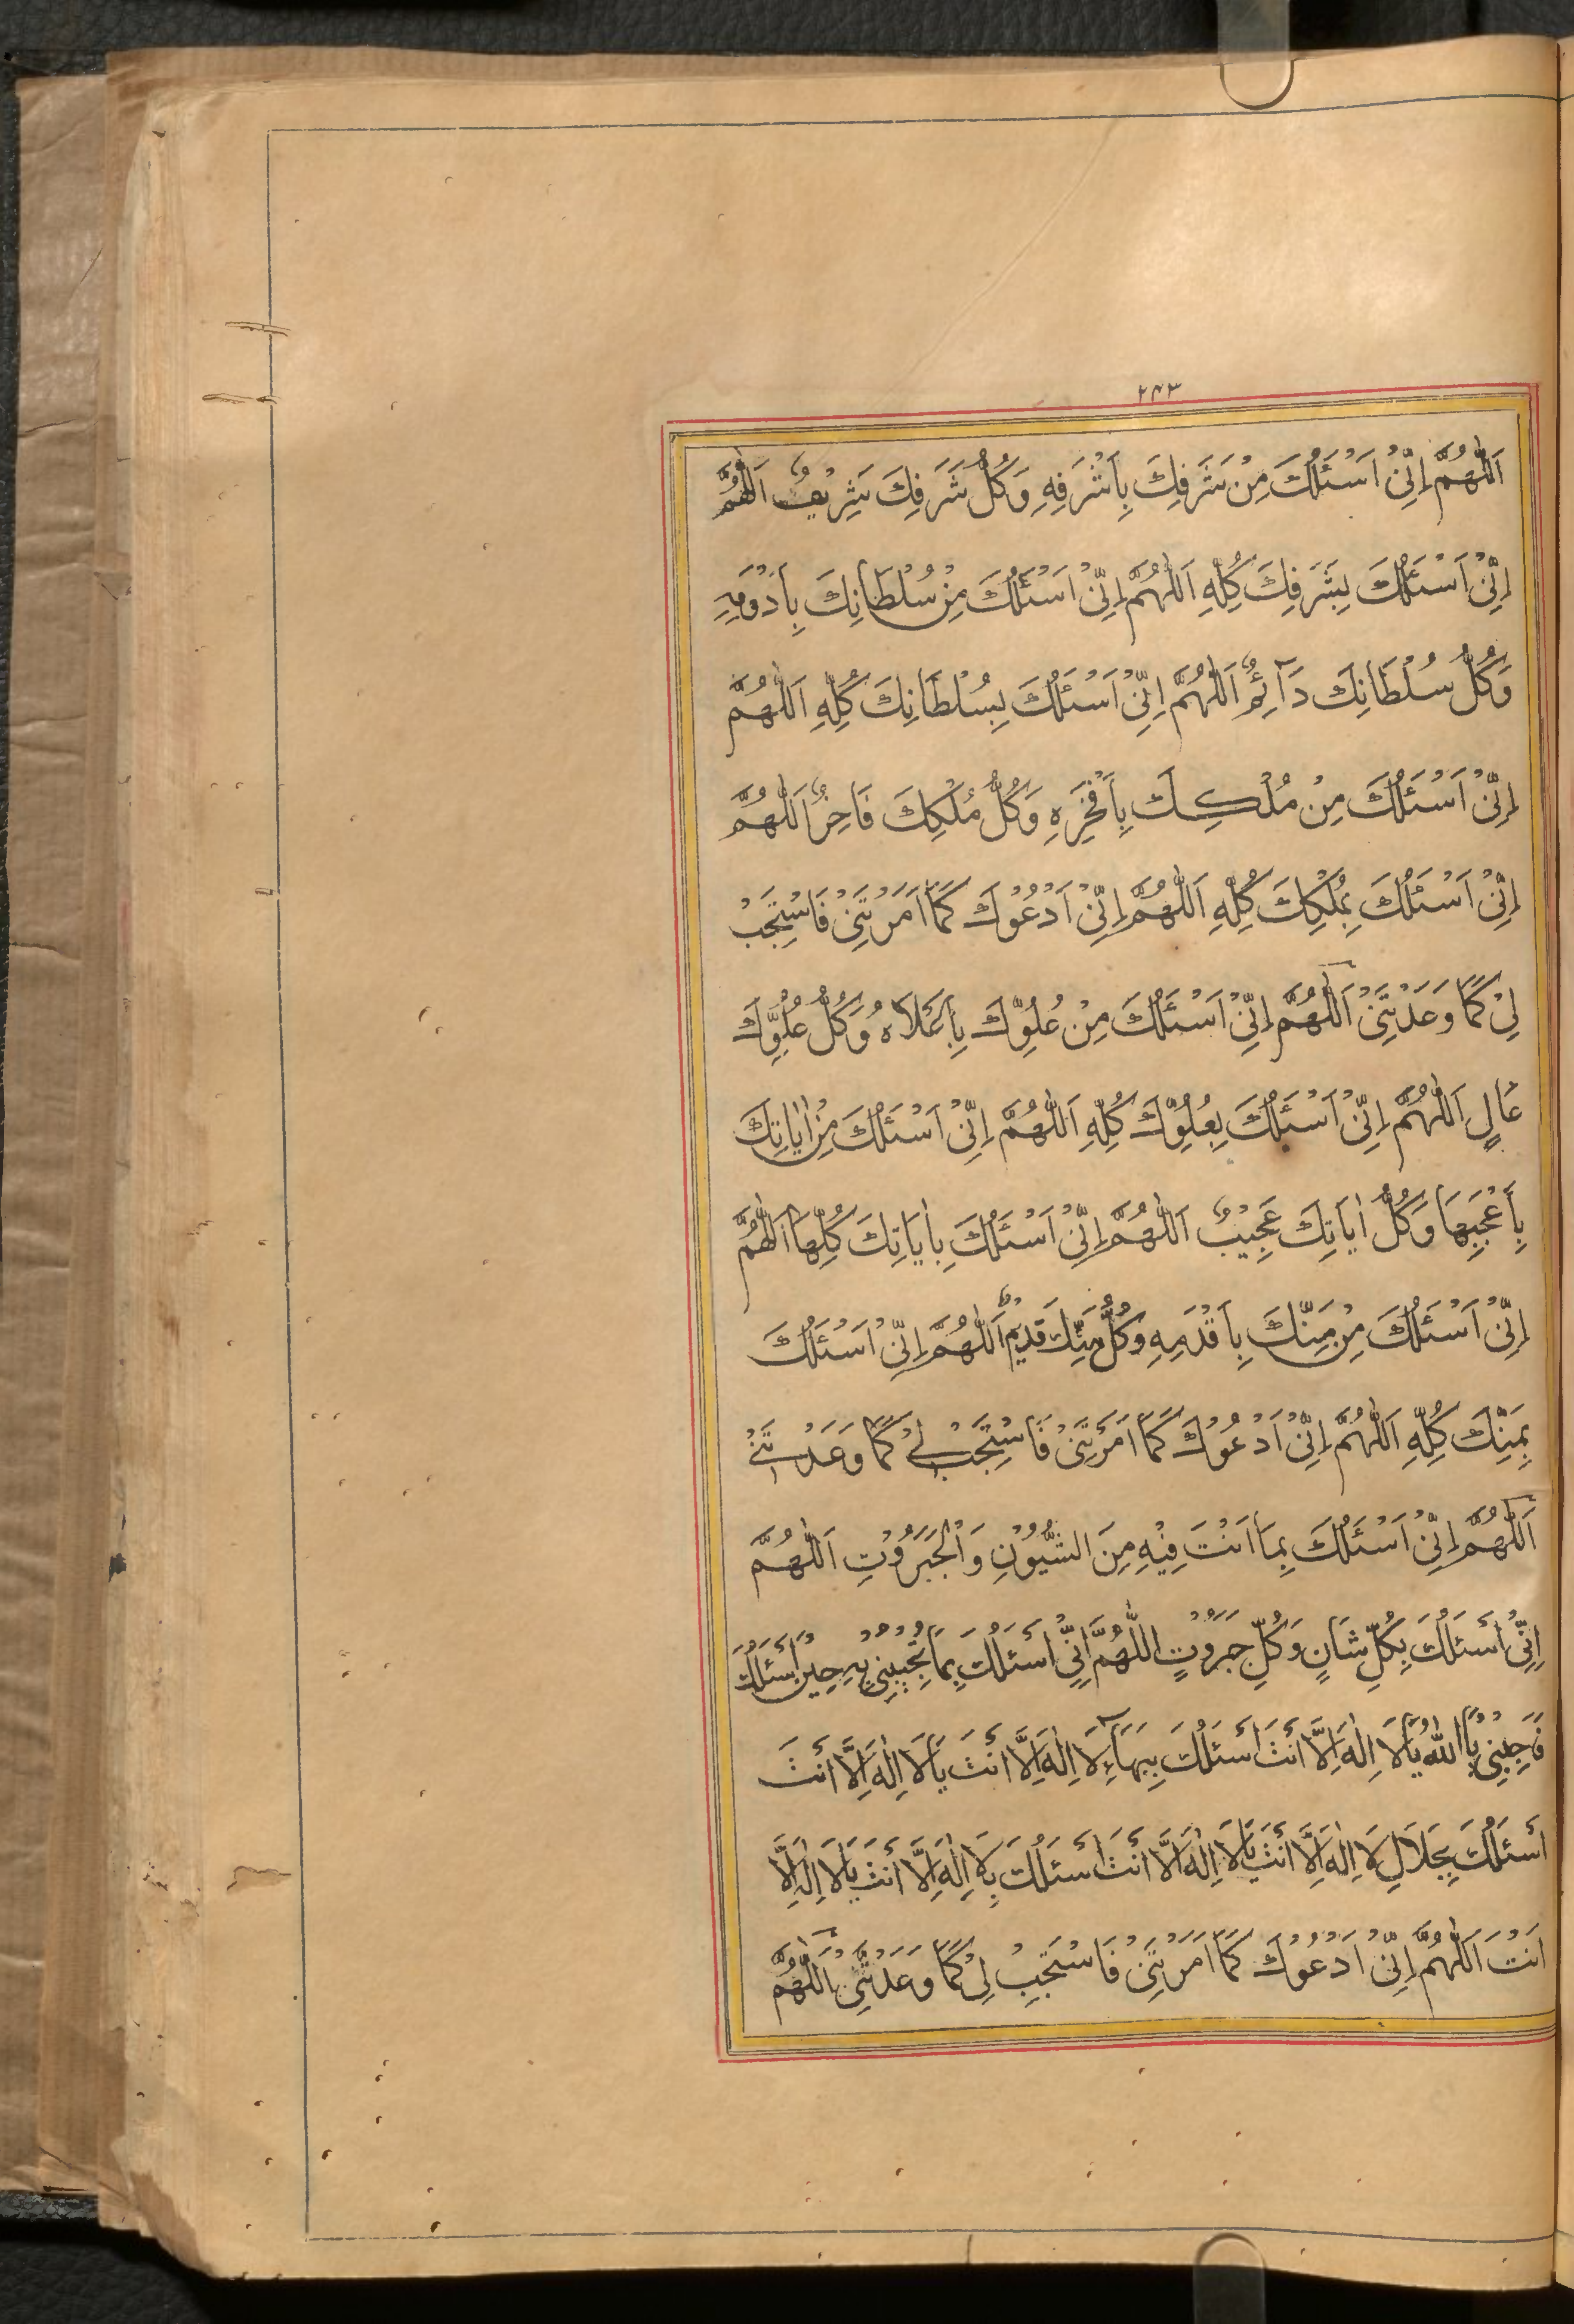 ٢٤٣
اَللّٰهُمَّ اِنِّیْ اَسْئَلُكَ مِنْ شَرَفِكَ بِاَشْرَفِهِ وَكُلُّ شَرَفِكَ شَرِيْفٌ اَللّٰهُمَّ
اِنِّیْ اَسْئَلُكَ بِشَرَفِكَ كُلِّهِ اَللّٰهُمَّ اِنِّیْ اَسْئَلُكَ مِنْ سُلْطَانِكَ بِاَدْوَمِهِ
وَكُلُّ سُلْطَانِكَ دَآئِمٌ اَللّٰهُمَّ اِنِّیْ اَسْئَلُكَ بِسُلْطَانِكَ كُلِّهِ اَللّٰهُمَّ
اِنِّیْ اَسْئَلُكَ مِنْ مُلْكِكَ بِاَفْخَرِهِ وَكُلُّ مُلْكِكَ فَاخِرٌ اَللّٰهُمَّ
اِنِّیْ اَسْئَلُكَ بِمُلْكِكَ كُلِّهِ اَللّٰهُمَّ اِنِّیْ اَدْعُوْكَ كَمَا اَمَرْتَنِیْ فَاسْتَجِبْ
لِیْ كَمَا وَعَدْتَنِیْ اَللّٰهُمَّ اِنِّیْ اَسْئَلُكَ مِنْ عُلُوِّكَ بِاَعْلَاهُ وَكُلُّ عُلُوِّكَ
عَالٍ اَللّٰهُمَّ اِنِّیْ اَسْئَلُكَ بِعُلُوِّكَ كُلِّهِ اَللّٰهُمَّ اِنِّیْ اَسْئَلُكَ مِنْ اٰيَاتِكَ
بِاَعْجَبِهَا وَكُلُّ اٰيَاتِكَ عَجِيْبٌ اَللّٰهُمَّ اِنِّیْ اَسْئَلُكَ بِاٰيَاتِكَ كُلِّهَا اَللّٰهُمَّ
اِنِّیْ اَسْئَلُكَ مِنْ مَنِّكَ بِاَقْدَمِهِ وَكُلُّ مَنِّكَ قَدِيْمٌ اَللّٰهُمَّ اِنِّیْ اَسْئَلُكَ
بِمَنِّكَ كُلِّهِ اَللّٰهُمَّ اِنِّیْ اَدْعُوْكَ كَمَا اَمَرْتَنِیْ فَاسْتَجِبْ لِیْ كَمَا وَعَدْتَنِیْ
اَللّٰهُمَّ اِنِّیْ اَسْئَلُكَ بِمَا اَنْتَ فِيْهِ مِنَ الشُّيُوْنِ وَالْجَبَرُوْتِ اَللّٰهُمَّ
اِنِّیْ اَسْئَلُكَ بِكُلِّ شَانٍ وَكُلِّ جَبَرُوْتٍ اللّٰهُمَّ اِنِّیْ اَسْئَلُكَ بِمَا تُجِيْبُنِیْ بِهِ حِيْنَ اَسْئَلُكَ
فَاَجِبْنِیْ يَا اللّٰهُ يَا لَا اِلٰهَ اِلَّا اَنْتَ اَسْئَلُكَ بِبَهَآءِ لَا اِلٰهَ اِلَّا اَنْتَ يَا لَا اِلٰهَ اِلَّا اَنْتَ
اَسْئَلُكَ بِجَلَالِ لَا اِلٰهَ اِلَّا اَنْتَ يَا لَا اِلٰهَ اِلَّا اَنْتَ اَسْئَلُكَ بِلَا اِلٰهَ اِلَّا اَنْتَ يَا لَا اِلٰهَ اِلَّا
اَنْتَ اَللّٰهُمَّ اِنِّیْ اَدْعُوْكَ كَمَا اَمَرْتَنِیْ فَاسْتَجِبْ لِیْ كَمَا وَعَدْتَنِیْ اَللّٰهُمَّ